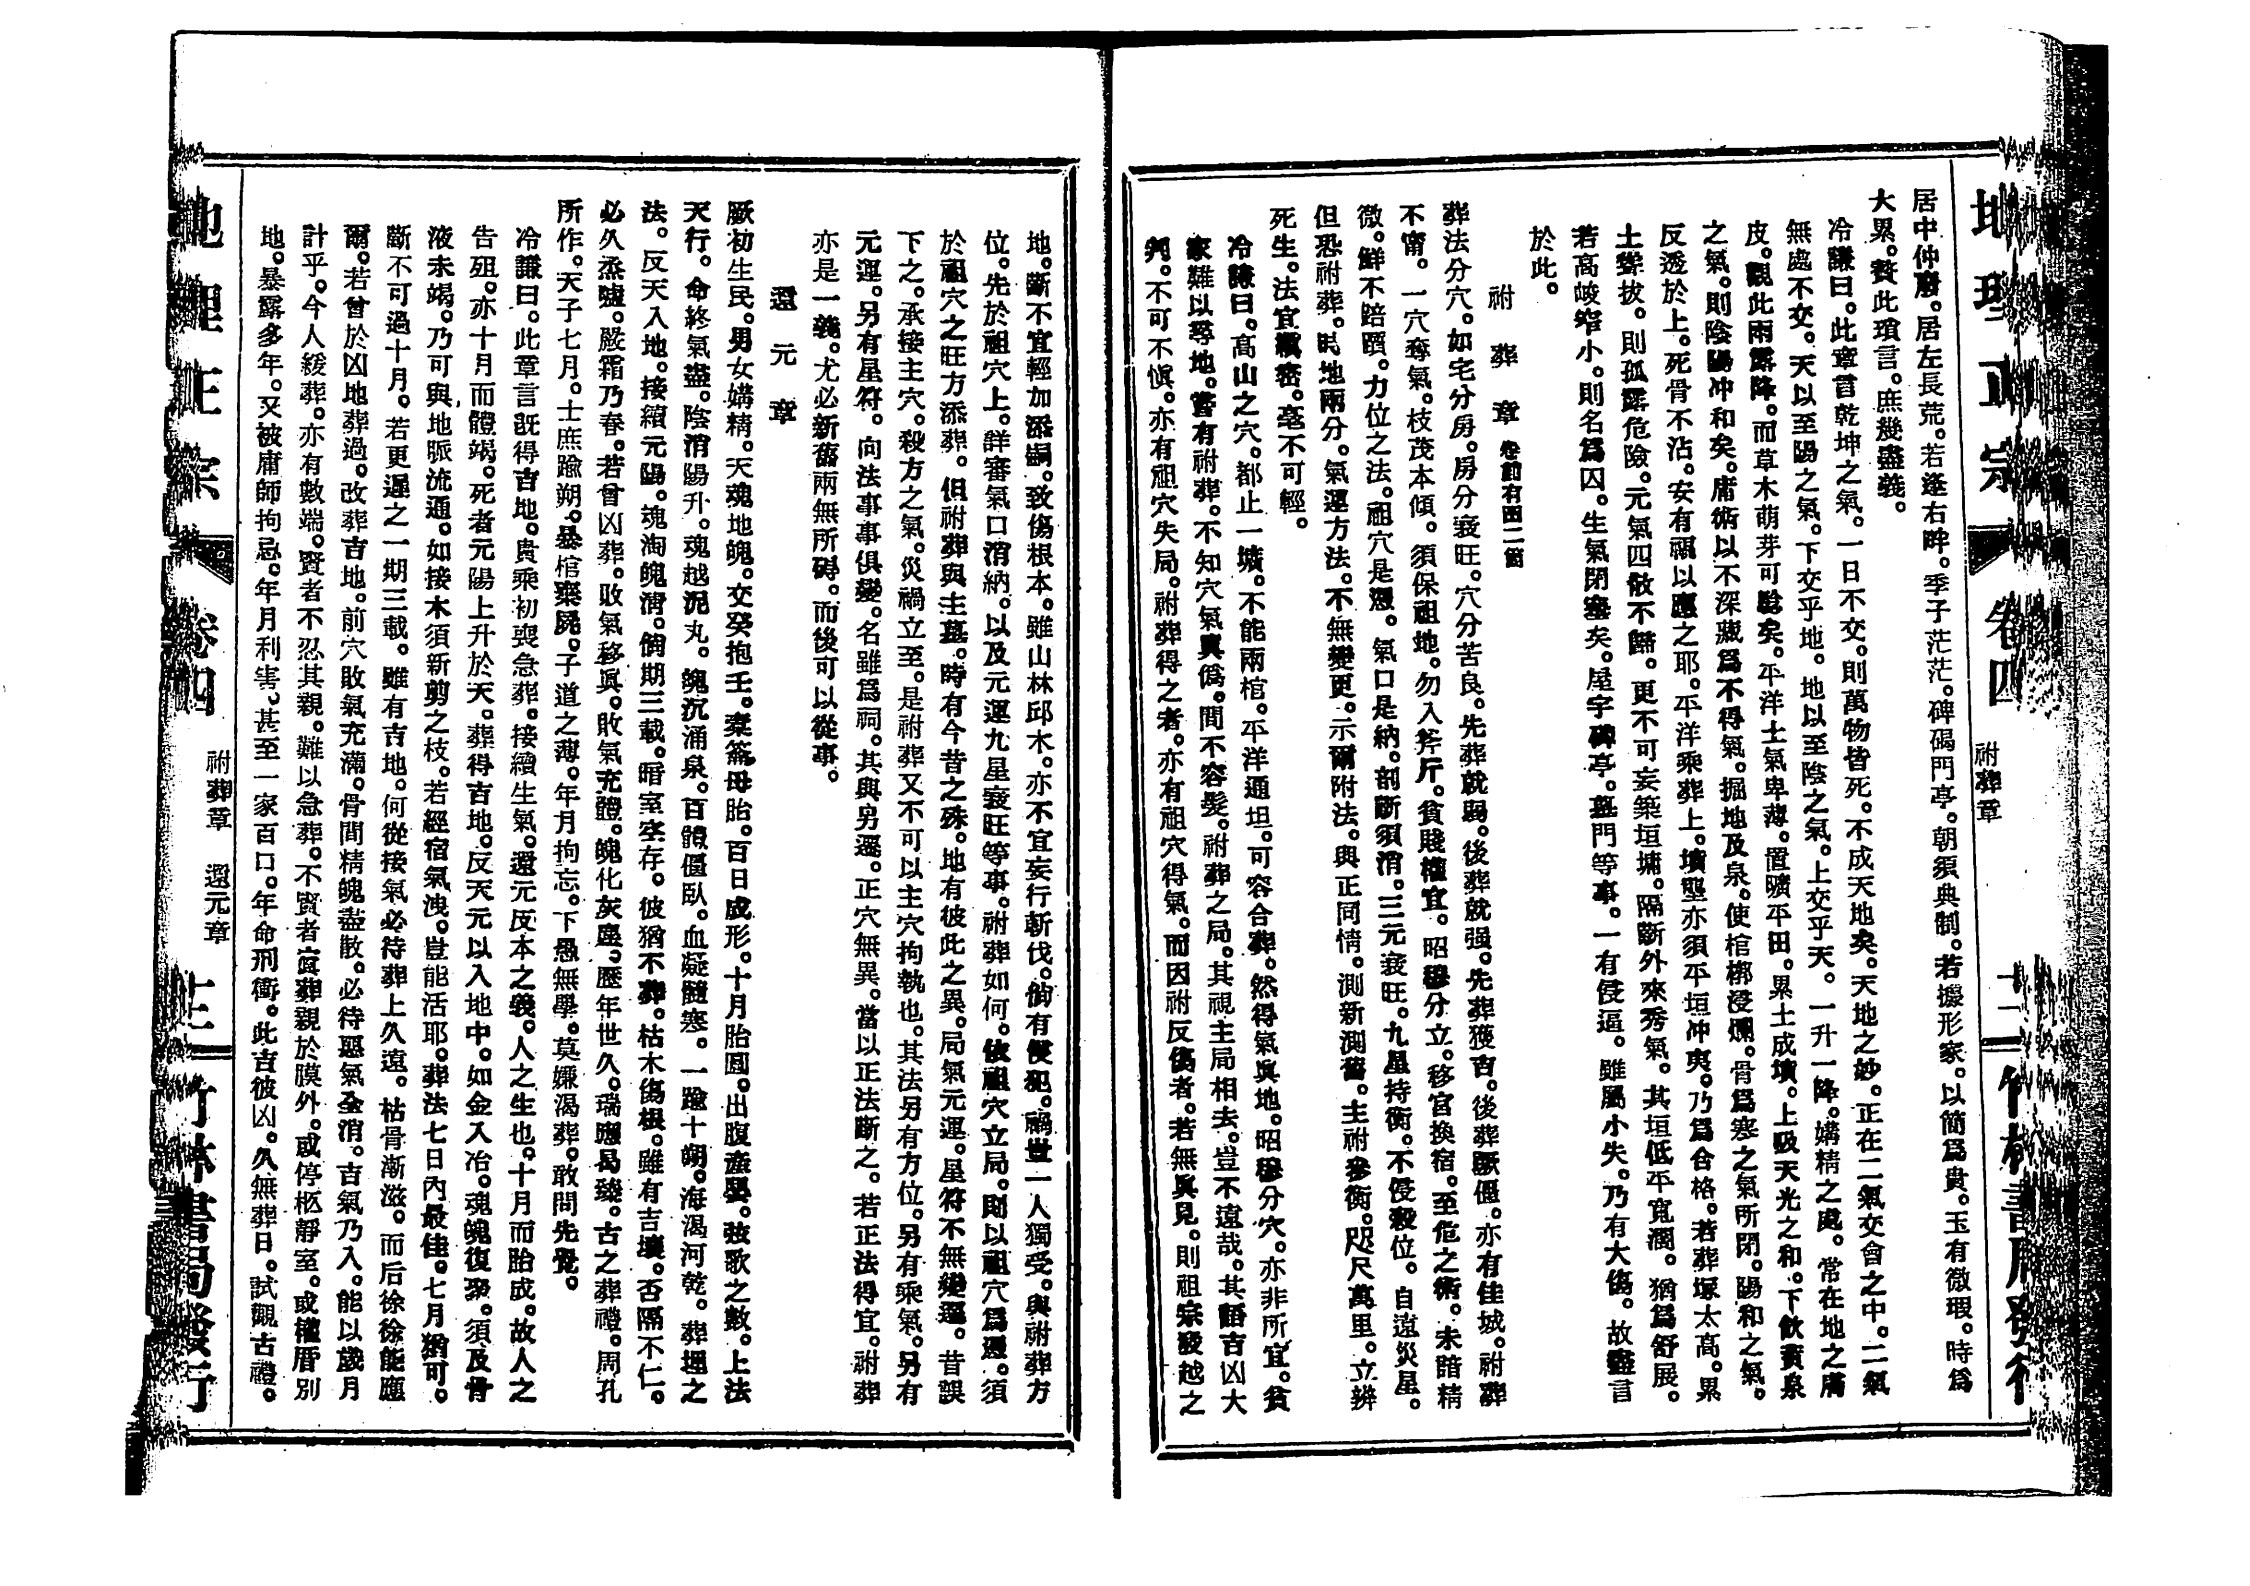 地理正宗 卷四 祔葬章 十二 竹林書局發行
居中仲廢。居左長荒。若逢右畔。季子茫茫。碑碣門亭。朝須典制。若據形家。以簡爲貴。玉有微瑕。時爲
大累。贅此瑣言。庶幾盡義。
冷謙曰。此章言乾坤之氣。一日不交。則萬物皆死。不成天地矣。天地之妙。正在二氣交會之中。二氣
無處不交。天以至陽之氣。下交乎地。地以至陰之氣。上交乎天。一升一降。媾精之處。常在地之膚
皮。觀此雨露降。而草木萌芽可驗矣。平洋土氣卑薄。置曠平田。累土成墳。上吸天光之和。下飲黃泉
之氣。則陰陽冲和矣。庸術以不深藏爲不得氣。掘地及泉。使棺槨浸爛。骨爲寒之氣所閉。陽和之氣。
反透於上。死骨不沾。安有福以應之耶。平洋乘葬上。墳塋亦須平垣冲夷。乃爲合格。若葬塚太高。累
土聳拔。則孤露危險。元氣四散不歸。更不可妄築垣墉。隔斷外來秀氣。其垣低平寬濶。猶爲舒展。
若高峻窄小。則名爲囚。生氣閉塞矣。屋宇碑亭。墓門等事。一有侵逼。雖屬小失。乃有大傷。故盡言
於此。
祔葬章 卷前有圖二箇
葬法分穴。如宅分房。房分衰旺。穴分苦良。先葬就弱。後葬就强。先葬獲吉。後葬厭僵。亦有佳城。祔葬
不甯。一穴奪氣。枝茂本傾。須保祖地。勿入斧斤。貧賤權宜。昭穆分立。移宮換宿。至危之術。未諳精
微。鮮不踣躓。力位之法。祖穴是憑。氣口是納。剖斷須消。三元衰旺。九星持衡。不侵殺位。自遠災星。
但恐祔葬。時地兩分。氣運方法。不無變更。示爾附法。與正同情。測新測舊。主祔參衡。咫尺萬里。立辨
死生。法宜縝密。毫不可輕。
冷謙曰。高山之穴。都止一壙。不能兩棺。平洋通坦。可容合葬。然得氣眞地。昭穆分穴。亦非所宜。貧
家難以尋地。嘗有祔葬。不知穴氣眞僞。間不容髮。祔葬之局。其視主局相去。豈不遠哉。其語吉凶大
判。不可不愼。亦有祖穴失局。祔葬得之者。亦有祖穴得氣。而因祔反傷者。若無眞見。則祖宗發越之
地。斷不宜輕加添嗣。致傷根本。雖山林邱木。亦不宜妄行斬伐。倘有侵犯。禍世一人獨受。與祔葬方
位。先於祖穴上。詳審氣口消納。以及元運九星衰旺等事。祔葬如何。依祖穴立局。則以祖穴爲憑。須
於祖穴之旺方添葬。但祔葬與主墓。時有今昔之殊。地有彼此之異。局氣元運。星符不無變遷。昔誤
下之。承接主穴。殺方之氣。災禍立至。是祔葬又不可以主穴拘執也。其法另有方位。另有乘氣。另有
元運。另有星符。向法事事俱變。名雖爲祠。其與另遷。正穴無異。當以正法斷之。若正法得宜。祔葬
亦是一義。尤必新舊兩無所碍。而後可以從事。
還元章
厥初生民。男女媾精。天魂地魄。交癸抱壬。棄籥母胎。百日成形。十月胎圓。出腹產嬰。弦歌之數。上法
天行。命終氣盡。陰消陽升。魂越泥丸。魄沉涌泉。百體僵臥。血凝髓寒。一踰十朔。海渴河乾。葬埋之
法。反天入地。接續元陽。魂洵魄凋。倘期三載。暗室空存。彼猶不葬。枯木傷根。雖有吉壤。否隔不仁。
必久烝噓。嚴霜乃春。若曾凶葬。敗氣移眞。敗氣充體。魄化灰塵。歷年世久。瑞應曷臻。古之葬禮。周孔
所作。天子七月。士庶踰朔。暴棺棄屍。子道之薄。年月拘忘。下愚無學。莫嫌渴葬。敢問先覺。
冷謙曰。此章言既得吉地。貴乘初喪急葬。接續生氣。還元反本之義。人之生也。十月而胎成。故人之
告殂。亦十月而體竭。死者元陽上升於天。葬得吉地。反天元以入地中。如金入冶。魂魄復聚。須及骨
液未竭。乃可與地脈流通。如接木須新剪之枝。若經宿氣洩。豈能活耶。葬法七日內最佳。七月猶可。
斷不可過十月。若更遲之一期三載。雖有吉地。何從接氣。必待葬上久遠。枯骨漸滋。而后徐徐能應
爾。若曾於凶地葬過。改葬吉地。前穴敗氣充滿。骨間精魄盡散。必待惡氣全消。吉氣乃入。能以歲月
計乎。今人緩葬。亦有數端。賢者不忍其親。難以急葬。不賢者寘葬親於膜外。或停柩靜室。或權厝別
地。暴露多年。又被庸師拘忌。年月利害。甚至一家百口。年命刑衝。此吉彼凶。久無葬日。試觀古禮。
地理正宗 卷四 祔葬章 還元章 十三 竹林書局發行